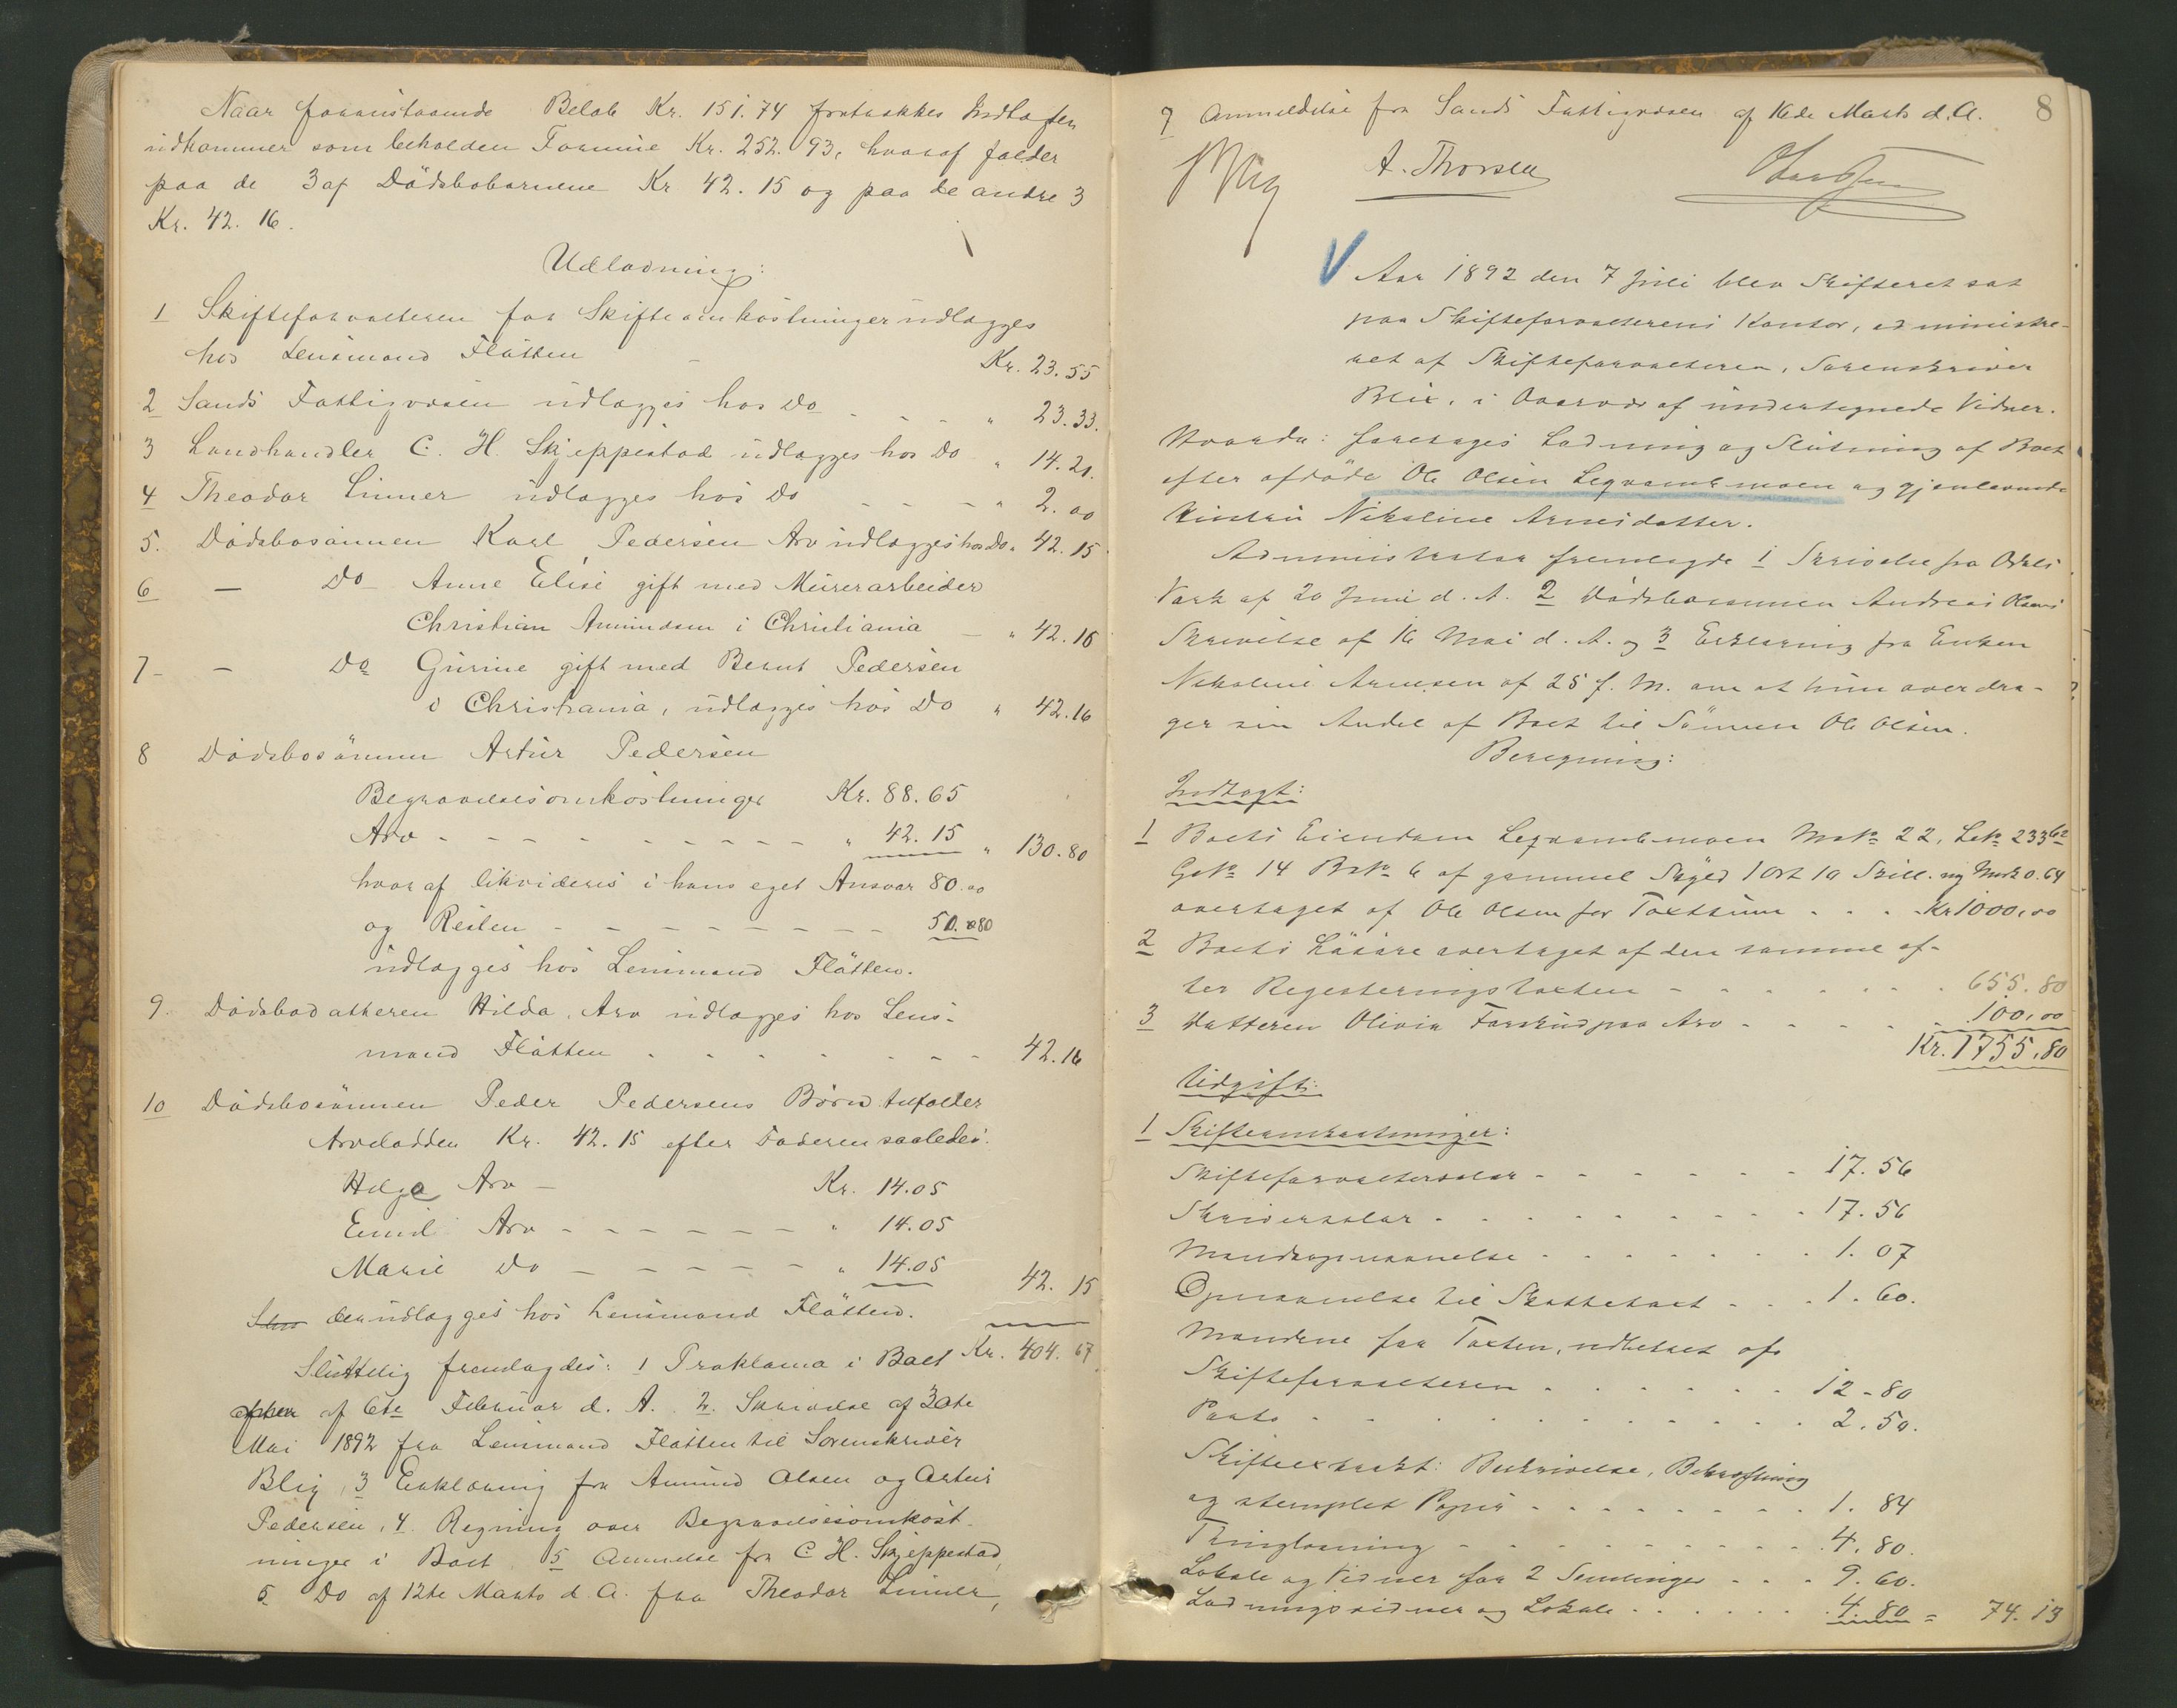 Naar foranstaaende Beløb Kr. 151.74 fratrækkes Indtægten
udkommer som beholden Formue Kr. 252.93, hvoraf falder
paa de 3 af Dödsbobørnene Kr 42.15 og paa de andre 3
Kr. 42.16.
Udlodning:
1 Skifteforvalteren for Skifteomkostninger udlægges
hos Lensmand Flåtten - Kr. 23.55
2 Sands Fattigvæsen udlægges hos Do - - - " 23.33.
3 Landhandler C. H. Skjeppestad udlægges hos Do " 14.20.
4 Theodor Linner udlægges hos Do - - - " 2.00
5. Dödsbosönnen Karl Pedersen Arv udlægges hos Do " 42.15
6 - Do Anne Elise gift med Murerarbeider
Christian Amundsen i Christiania - " 42.16
7 - - Do Gurine gift med Bernt Pedersen
i Christiania, udlægges hos Do " 42.16
8 Dödsbosönnen Artur Pedersen
Begravelsesomkostninger Kr. 88.65
Arv - - - - - - - - - " 42.15 " 130.80
hvoraf likvideres i hans eget Ansvar 80.00
og Resten - - - - - - - - 50.80
udlægges hos Lensmand Flåtten.
9. Dödsbodatteren Hilda. Arv udlægges hos Lens-
mand Flåtten - - - - - - - - 42.16
10 Dödsbosönnen Peder Pedersens Børn tilfalder
Arvelodden Kr. 42.15 efter Faderen saaledes:
Helga Arv - Kr. 14.05
Emil Arv - - - - - - " 14.05
Marie Do - - - - - " 14.05 42.15
der udlægges hos Lensmand Flåtten.
Kr. 404.67
Sluttelig fremlagdes: 1 Proklama i Boet
af 6te Februar d. A. 2. Skrivelse af 30te
Mai 1892 fra Lensmand Flåtten til Sorenskriver
Blix, 3 Erklæring fra Amund Olsen og Artur
Pedersen, 4. Regning over Begravelsesomkost-
ninger i Boet 5 Anmeldelse fra C H. Skjeppestad,
6 Do af 12te Marts d. A. fra Theodor Linner,
8
7 Anmeldelse fra Sands Fattigvæsen af 16de Marts d. A.
Blix A. Thorsen
V Aar 1892 den 7 Juli blev Skifteret sat
paa Skifteforvalterens Kontor, administre-
ret af Skifteforvalteren, Sorenskriver
Blix, i Overvær af undertegnede Vidner.
Hvorda: foretoges Lodning og Slutning af Boet
efter afdöde Ole Olsen Legvambmoen og gjenlevende
Hustru Nikoline Arnesdatter.
Administrator fremlagde 1 Skrivelse fra Odals
Værk af 20 Juni d. A. 2 Dødsbosønnen Andreas Olsens
Skrivelse af 16 Mai d. A. og 3 Erklæring fra Enken
Nikoline Arnesen af 25 f. M. om at hun overdra-
ger sin Andel af Boet til Sönnen Ole Olsen.
Beregning:
Indtægt:
1 Boets Eiendom Legvambmoen Mno 22, Lno 233 62
Gno 14 Bno 6 af gammel Skyld 1 Ort 10 Skill. ny Mark 0.64
overtaget af Ole Olsen for Taxtsum . . . . Kr 1000,00
2 Boets Lösöre overtaget af den samme ef-
ter Registeringstaxten - - - - - - - 655.80
3 Datteren Olivia Forskud paa Arv - - - - - 100,00
Kr. 1755.80
Udgift:
1 Skifteomkostninger:
Skifteforvaltersalær - - - - - - 17.56
Skriversalær - - - - - - - - 17.56
Mandsopnævnelse - - - - - - - 1.07
Opnævnelse til Skattetaxt - - - 1.60.
Mændene for Taxten, udbetalt af
Skifteforvalteren - - - - - - 12.80
Porto - - - - - - - - - - 2.50.
Skifteextrakt: Beskrivelse, Bekræftning
og stemplet Papir - - - - - - - - 1.84
Thinglæsning - - - - - - - - - 4.80.
Lokale og Vidner for 2 Samlinger - - - 9.60.
Lodningsvidner og Lokale - - - - - - 4.80 = 74.13